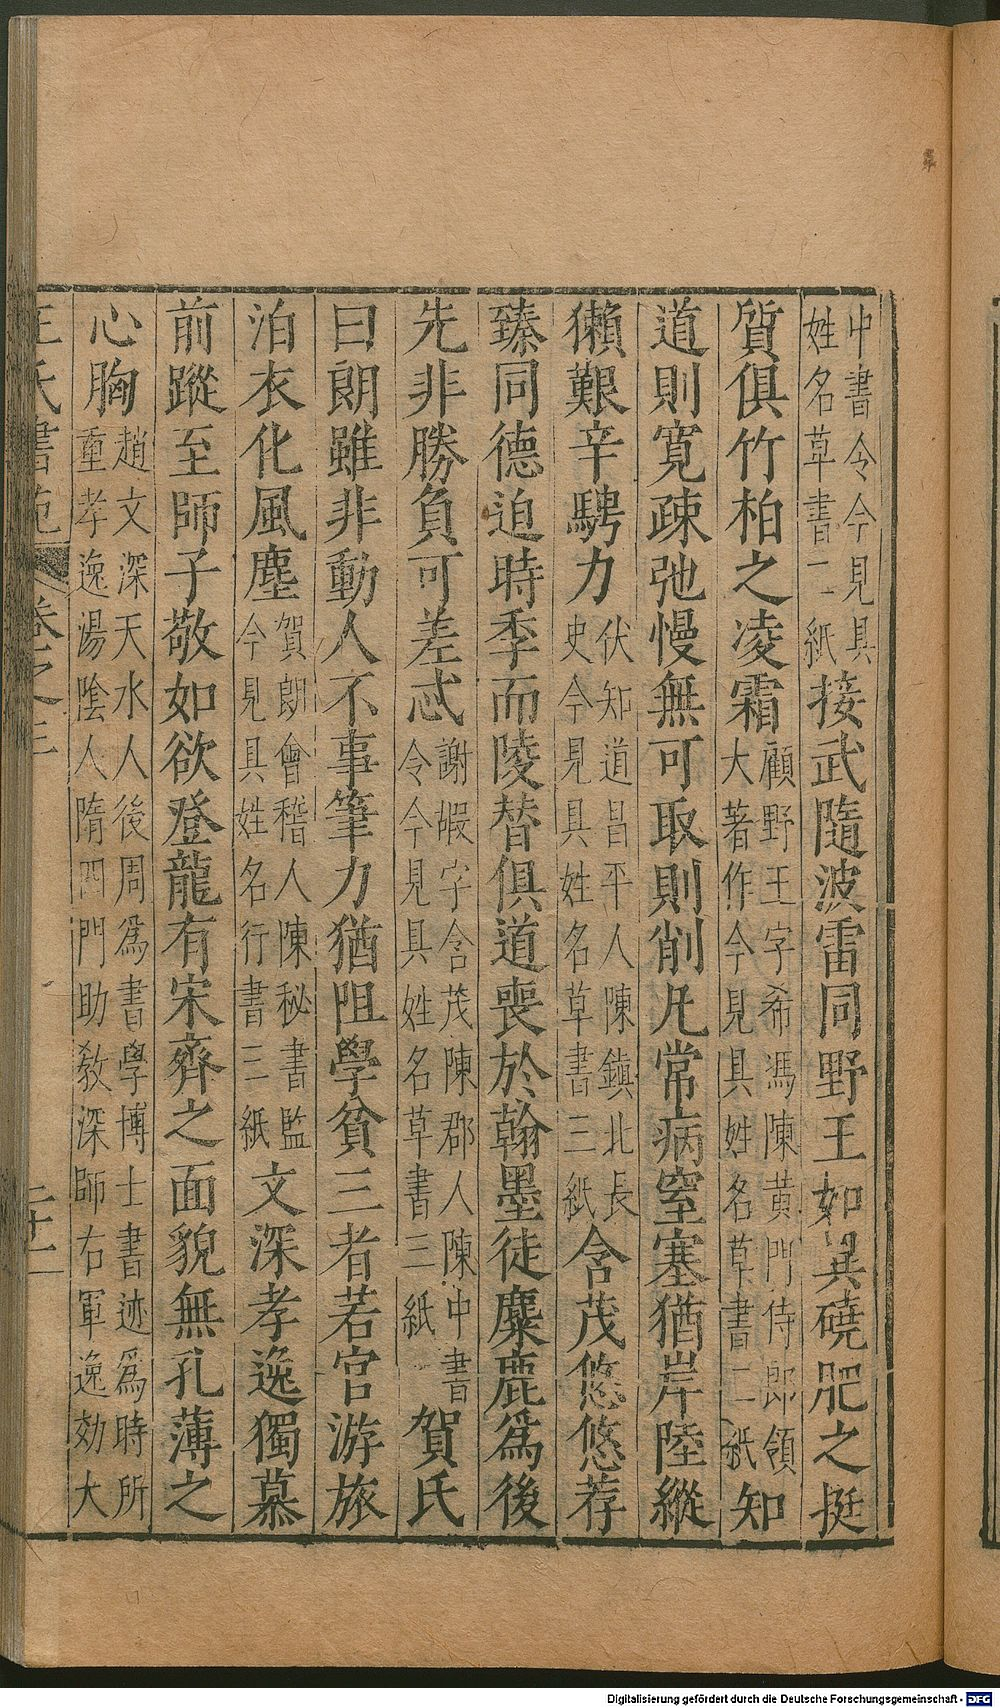 中書令今見具姓名草書一紙接武隨波雷同野王如異磽肥之挺
質俱竹柏之凌霜顧野王字希馮陳黃門侍郎領大著作今見具姓名草書二紙知
道則寬疎弛慢無可取則削凡常病窒塞猶岸陸縱
獺艱辛騁力伏知道昌平人陳鎮北長史今見具姓名草書三紙含茂悠悠荐
臻同德迫時季而陵替俱道喪於翰墨徒麋鹿爲後
先非勝負可差忒謝嘏字含茂陳郡人陳中書令今見具姓名草書三紙賀氏
曰朗雖非動人不事筆力猶阻學貧三者若宮游旅
泊衣化風塵賀朗會稽人陳秘書監今見具姓名行書三紙文深孝逸獨慕
前蹤至師子敬如欲登龍有宋齊之面貌無孔薄之
心胸趙文深天水人後周爲書學博士書迹爲時所重孝逸湯陰人隋四門助教深師右軍逸効大
王氏書苑 卷之三 二十一
Digitalisierung gefördert durch die Deutsche Forschungsgemeinschaft - DFG